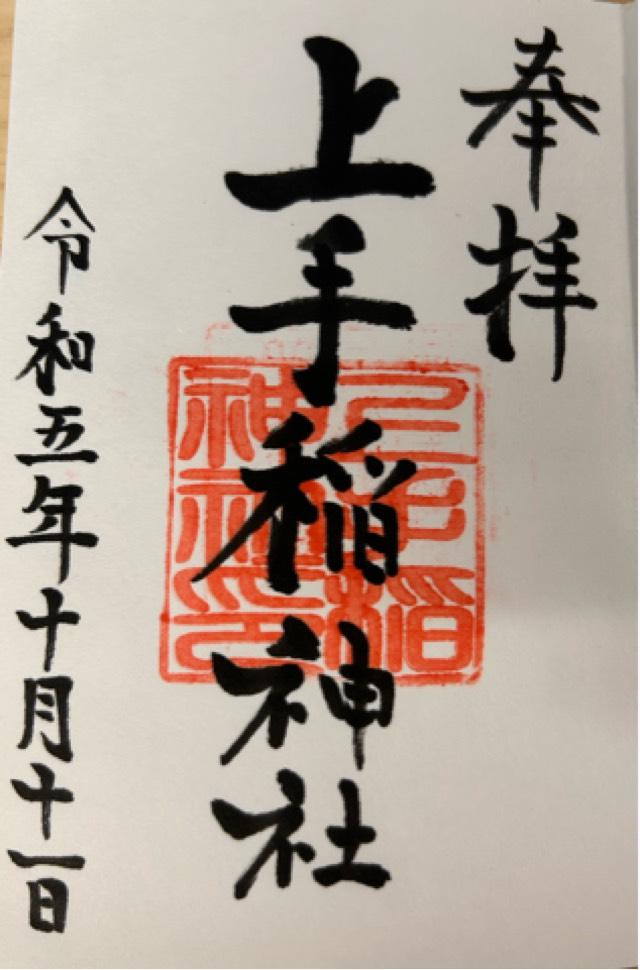 奉拝
上手稲神社
上手稲神社印
令和五年十月十一日